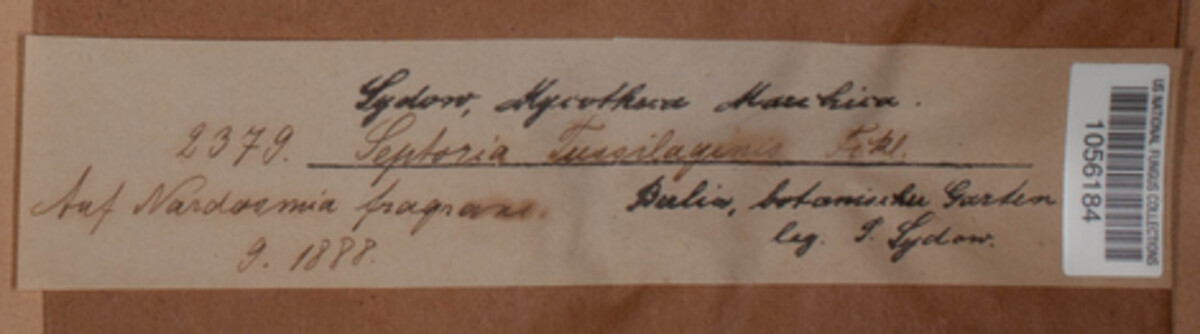 Sydow, Mycotheca Marchica.
2379. Septoria Tussilaginis Fckl.
Auf Nardosmia fragrans.
9. 1888.
Berlin, botanischer Garten
leg. P. Sydow.
US NATIONAL FUNGUS COLLECTIONS
1056184